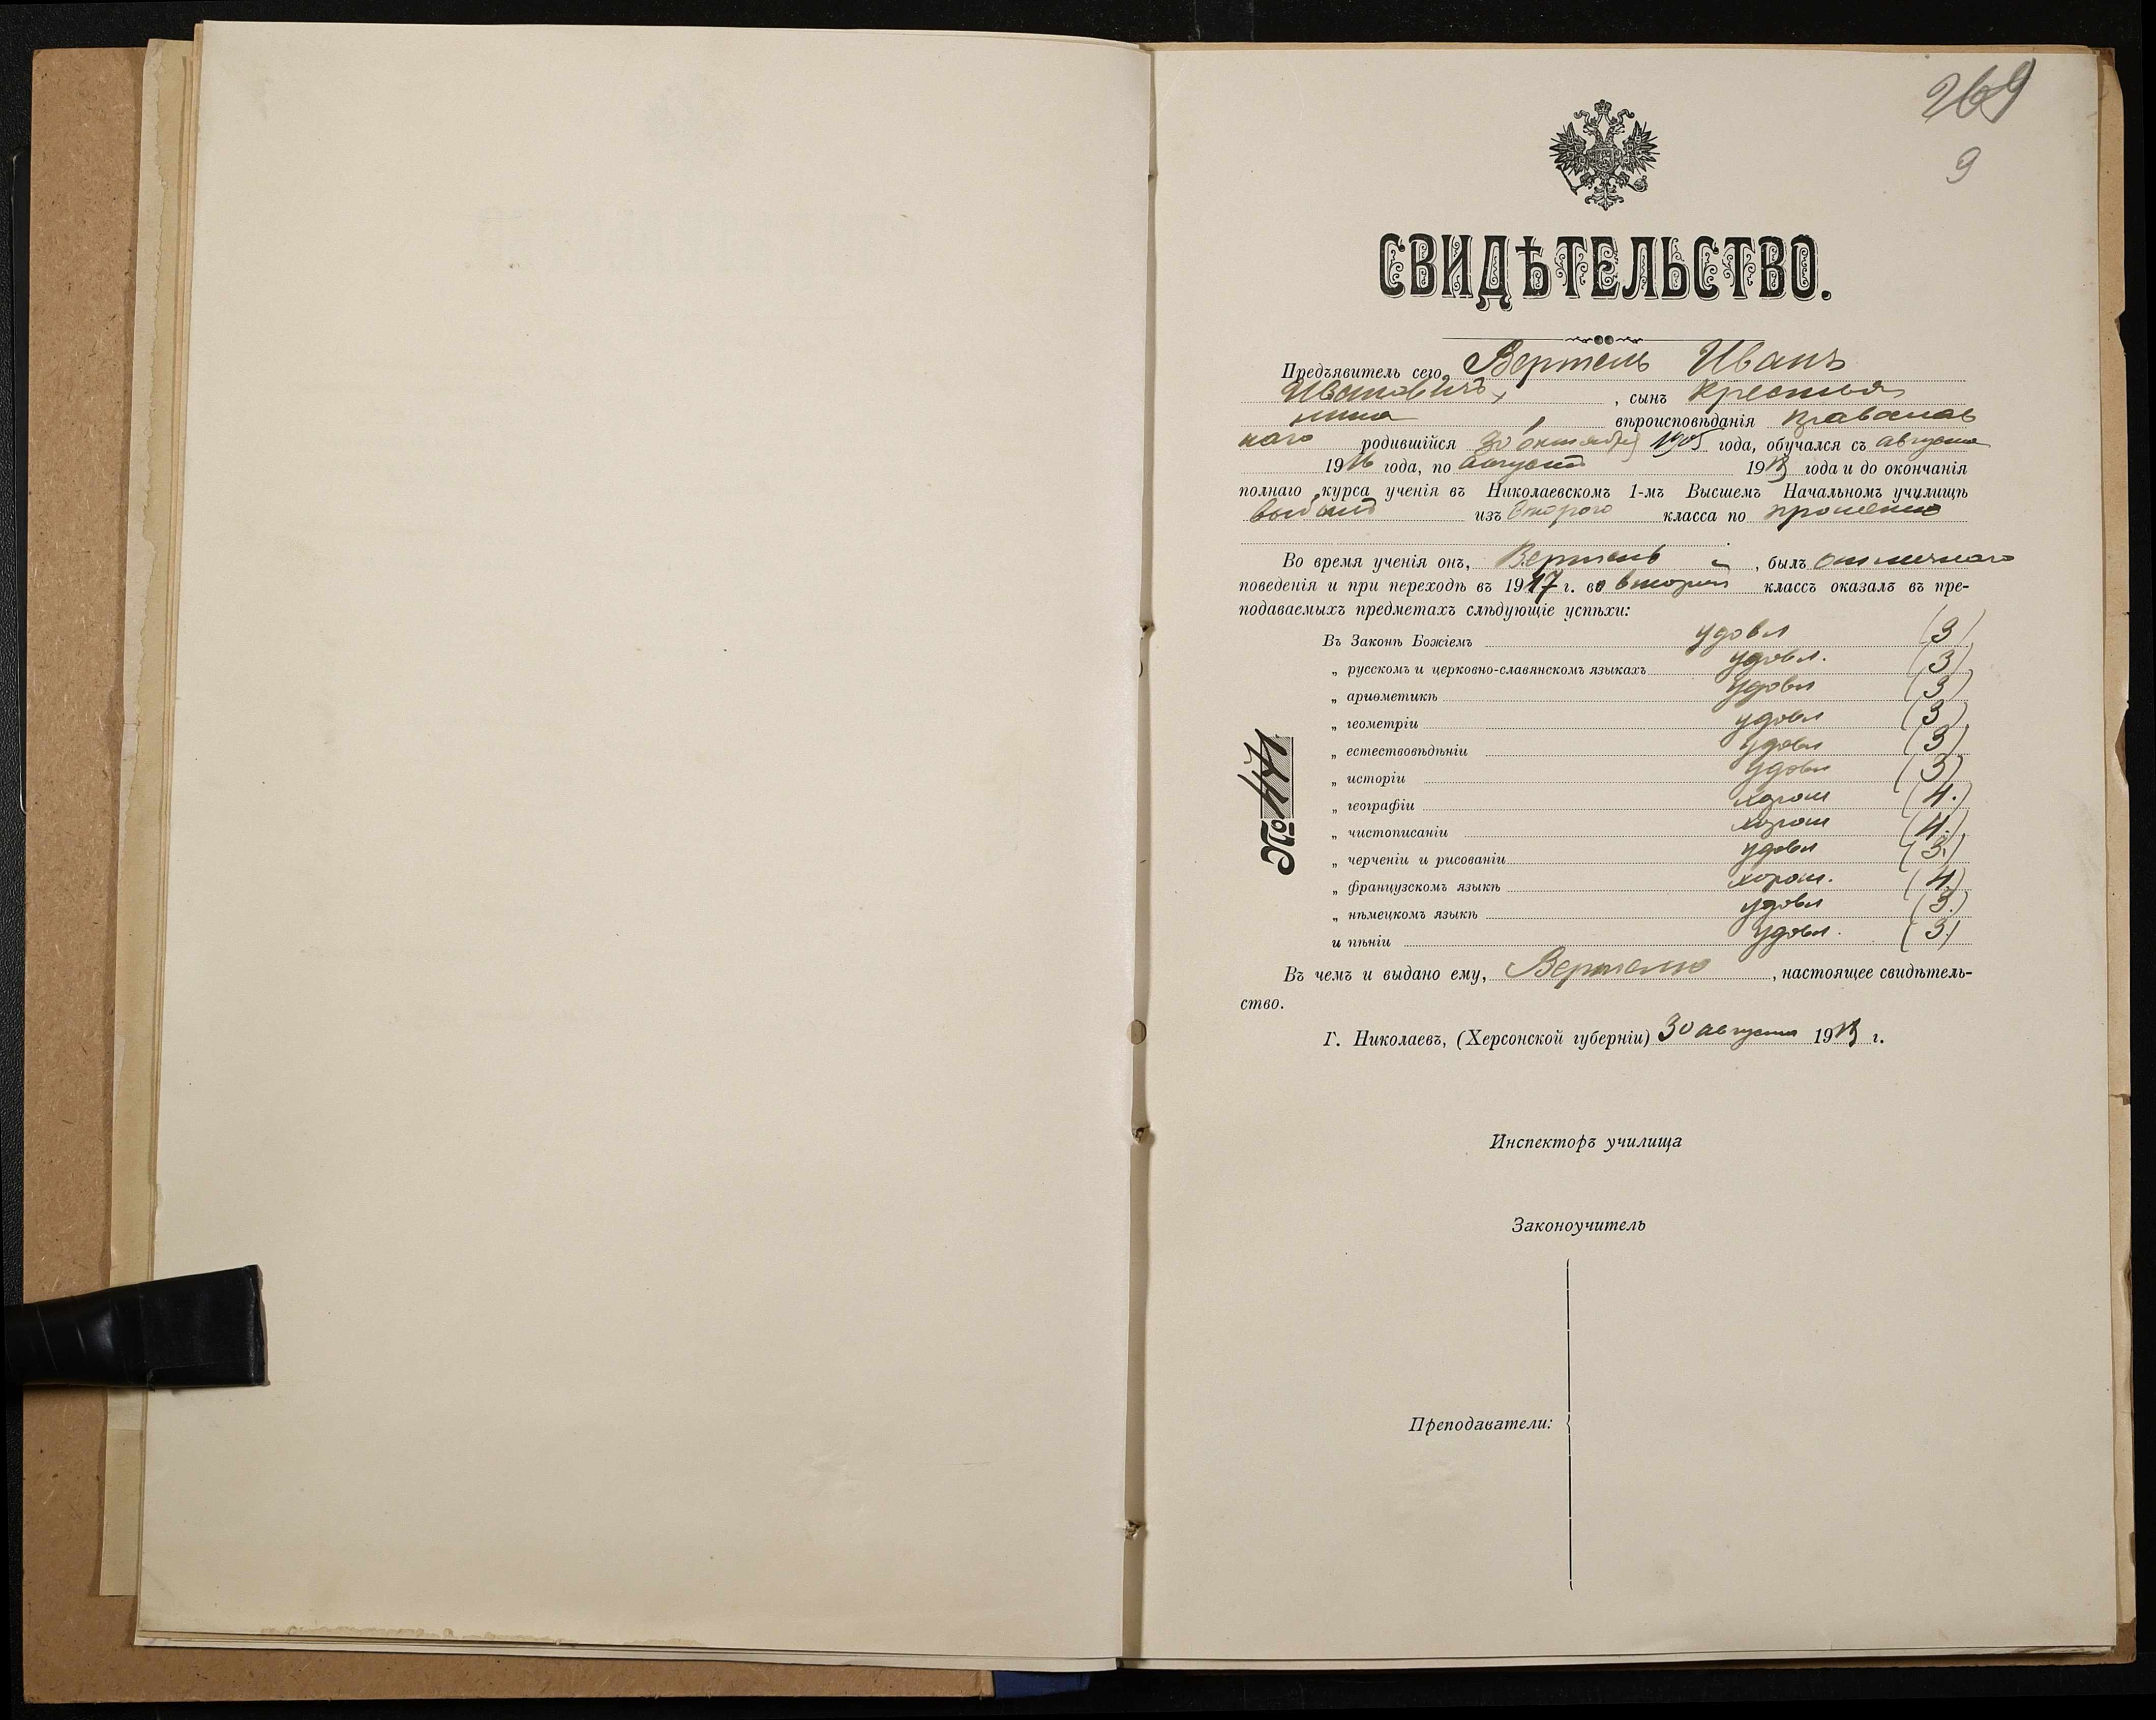 269
9
СВИДѢТЕЛЬСТВО.
Предъявитель сего, Вертель Иванъ
Ивановичъ, сынъ крестья
нина, вѣроисповѣданія православ
наго родившійся 30 октября 1905 года, обучался съ августа
1916 года, по августъ 19 года и до окончанія
полнаго курса ученія въ Николаевскомъ 1-мъ Высшемъ Начальномъ училищѣ
выбылъ изъ второго класса по прошенію
Во время ученія онъ, Вертель, былъ отличнаго
поведенія и при переходѣ въ 1917 г. во второй классъ оказалъ въ пре-
подаваемыхъ предметахъ слѣдующіе успѣхи:
Въ Законѣ Божіемъ удовл (3)
„ русскомъ и церковно-славянскомъ языкахъ удовл. (3)
„ ариѳметикѣ удовл (3)
„ геометріи удовл (3)
„ естествовѣдѣніи удовл (3)
„ исторіи удовл (3)
„ географіи хорош (4.)
„ чистописаніи хорош (4.)
„ черченіи и рисованіи удовл (3.)
„ французскомъ языкѣ хорош. (4)
„ нѣмецкомъ языкѣ удовл (3.)
и пѣніи удовл. (3.)
№ 
Въ чемъ и выдано ему, Вертелю, настоящее свидѣтель-
ство.
Г. Николаевъ, (Херсонской губерніи) 30 августа 19 г.
Инспекторъ училища
Законоучитель
Преподаватели: